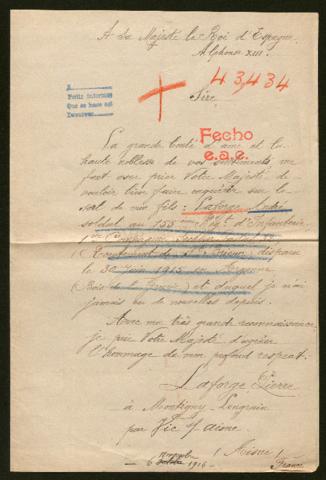 A Sa Majesté le Roi d'Espagne
Alphonse XIII.
43,434
Sire,
Fecho
e.a.c.
La grande bonté d'âme et la
haute noblesse de vos sentiments me
font vous prier Votre Majesté de
vouloir bien faire enquêter sur le
sort de mon fils : Laforge André
soldat au 155me Régt d'Infanterie
1re Compagnie
disparu
le 30 Juin 1915 en Argonne
(Bois de la Gruerie) et duquel je n'ai
jamais eu de nouvelles depuis.
Avec ma très grande reconnaissance,
je prie Votre Majesté d'agréer
l'hommage de mon profond respect.
Laforge Pierre
à Montigny-Lengrain
par Vic s/ Aisne
(Aisne)
France
6 novembre 1916